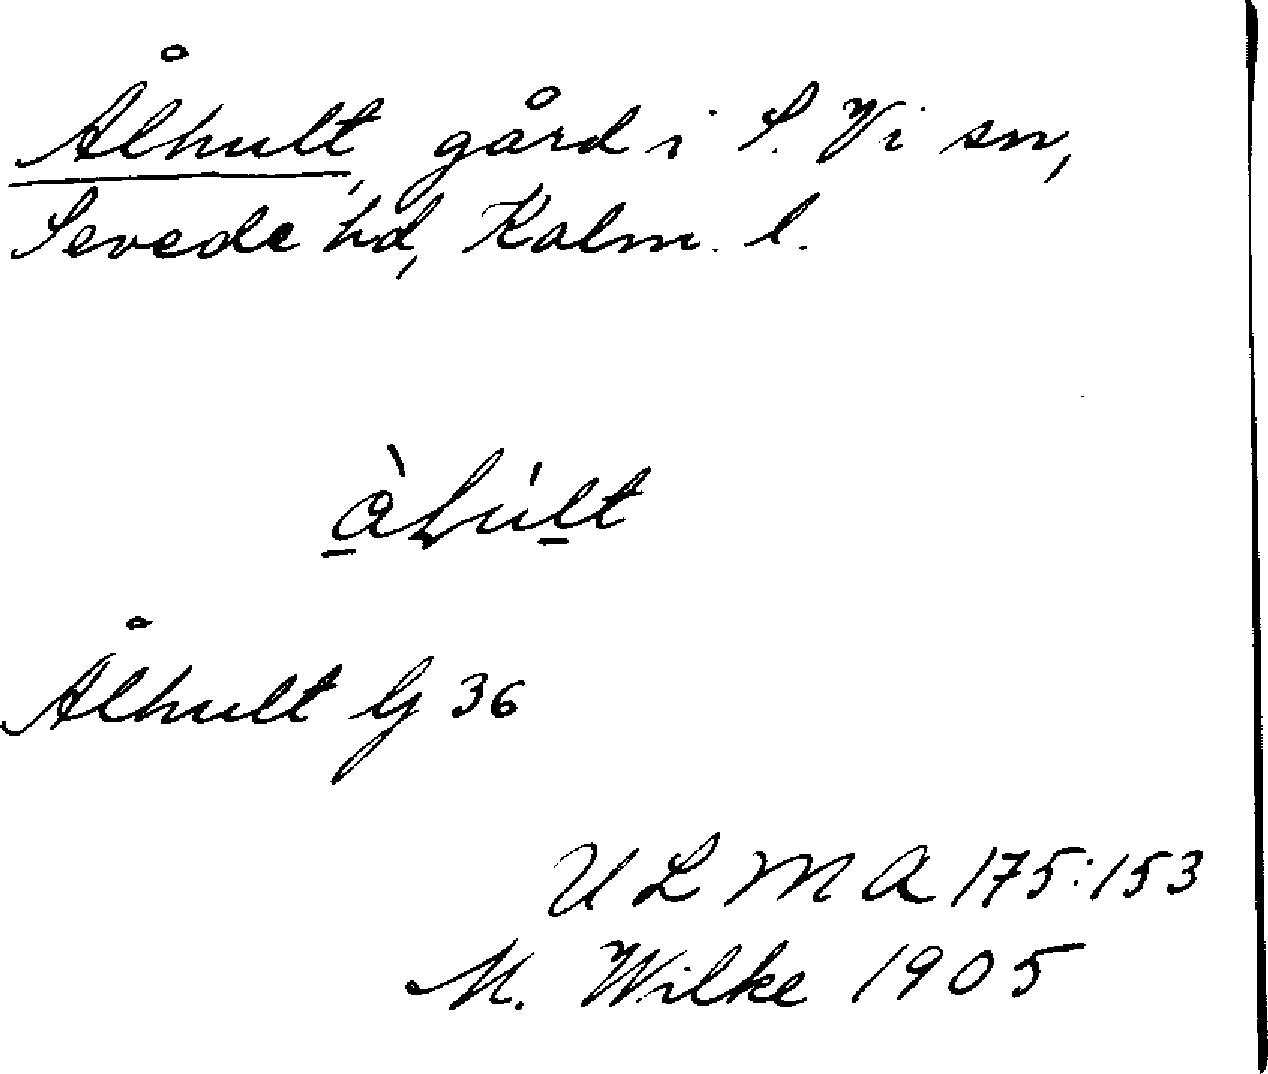 Ålhult, gård i S. Vi sn,
Sevede hd, Kalm. l.
àhúlt
Ålhult G 36
ULMA 175:153
M. Wilke 1905